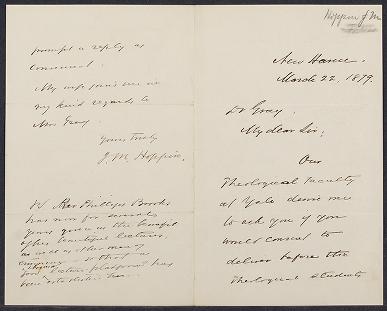 Hoppin J M
New Haven
March 22, 1879.
Dr Gray,
My dear Sir,
Our
Theological Faculty
at Yale desire me
to ask you if you
would consent to
deliver before the
Theological students
prompt a reply as
convenient.
My wife joins me in
my kind regards to
Mrs Gray.
Yours truly
J. M. Hoppin.
Phillips Brooks
has now for several
years given us the benefit
of his beautiful lectures,
as well as other men of
so that a
lecture platform has
been established here.